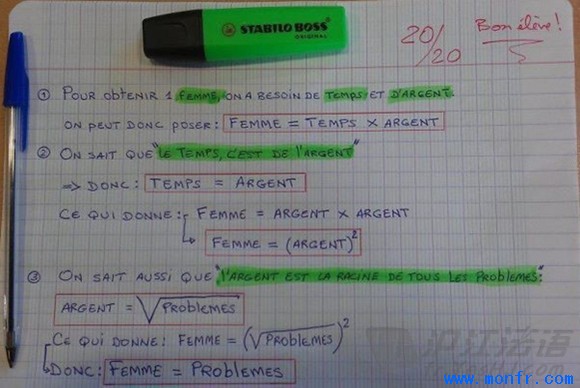 STABILO BOSS
ORIGINAL
20/20
Bon élève!
① POUR OBTENIR 1 FEMME, ON A BESOIN DE TEMPS ET D'ARGENT.
ON PEUT DONC POSER: FEMME = TEMPS X ARGENT
② ON SAIT QUE "LE TEMPS, C'EST DE L'ARGENT"
=> DONC: TEMPS = ARGENT
CE QUI DONNE: FEMME = ARGENT X ARGENT
FEMME = (ARGENT)²
③ ON SAIT AUSSI QUE "l'ARGENT EST LA RACINE DE TOUS LES PROBLEMES":
ARGENT = √PROBLEMES
CE QUI DONNE: FEMME = (√PROBLEMES)²
DONC: FEMME = PROBLEMES
沪江法语
www.monfr.com